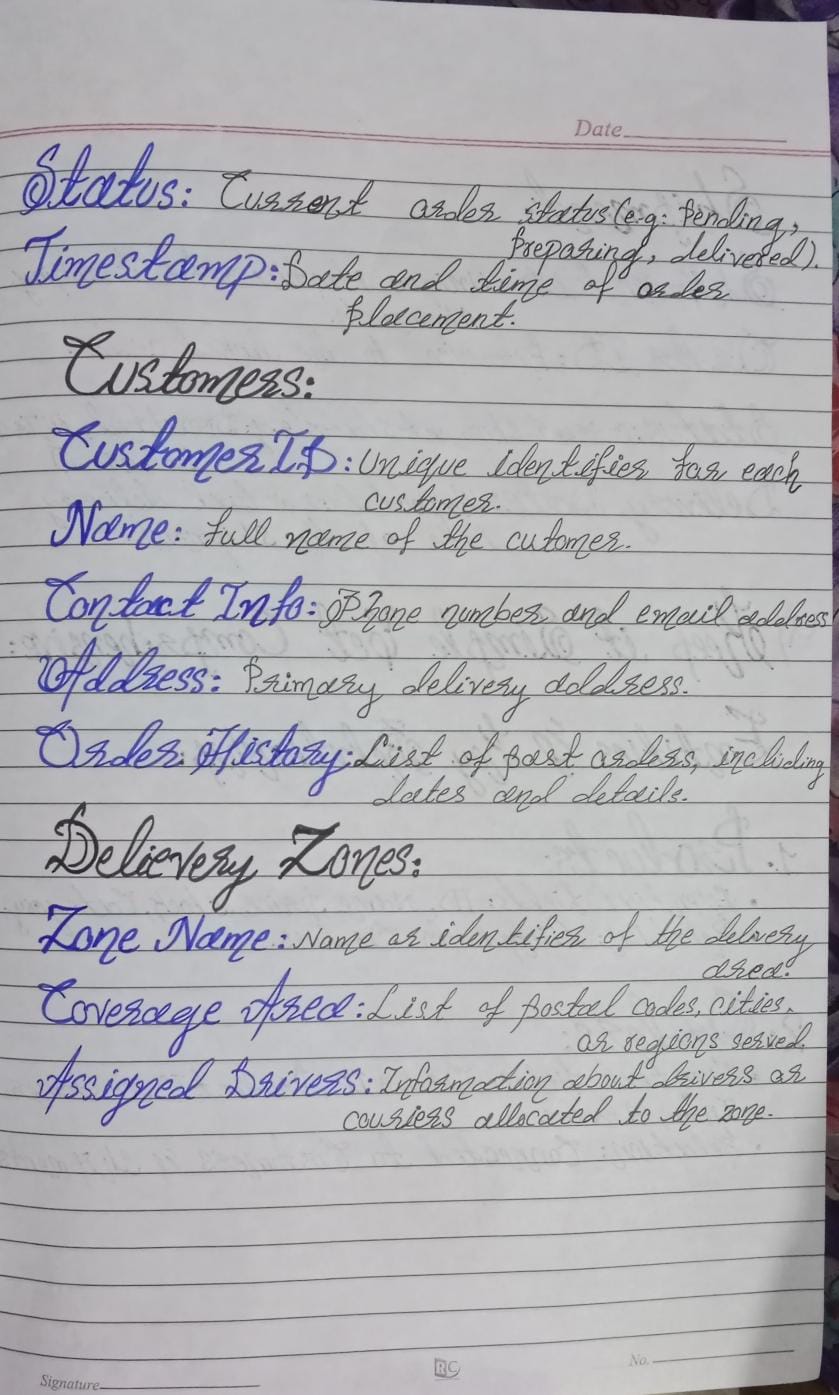 Date
Status: Current order status (e.g: Pending,
Preparing, delivered).
Timestamp: Date and time of order
placement.
Customers:
Customer ID: Unique identifier for each
customer.
Name: full name of the cutomer.
Contact Info: Phone number and email address
Address: Primary delivery address.
Order History: List of past orders, including
dates and details.
Delievery Zones:
Zone Name: Name or identifier of the delivery
area.
Coverage Area: List of postal codes, cities,
or regions served.
Assigned Drivers: Information about drivers or
couriers allocated to the zone.
Signature
RC
No.